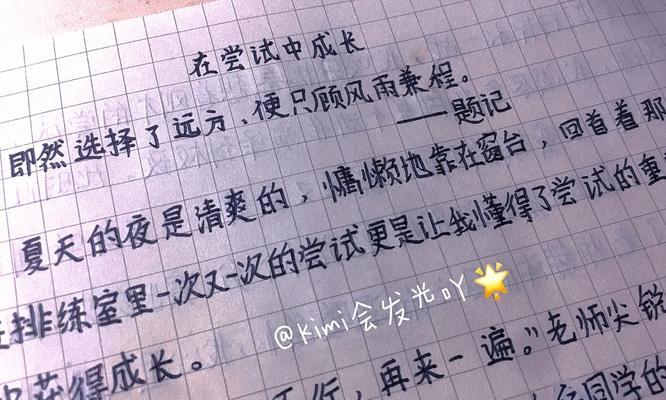 在尝试中成长
即然选择了远方、便只顾风雨兼程。
——题记
夏天的夜是清爽的，慵懒地靠在窗台，回首着那
排练室里一次又一次的尝试更是让我懂得了尝试的重
获得成长。
@kimi会发光吖🌟
行，再来一遍。”老师尖锐
同学的